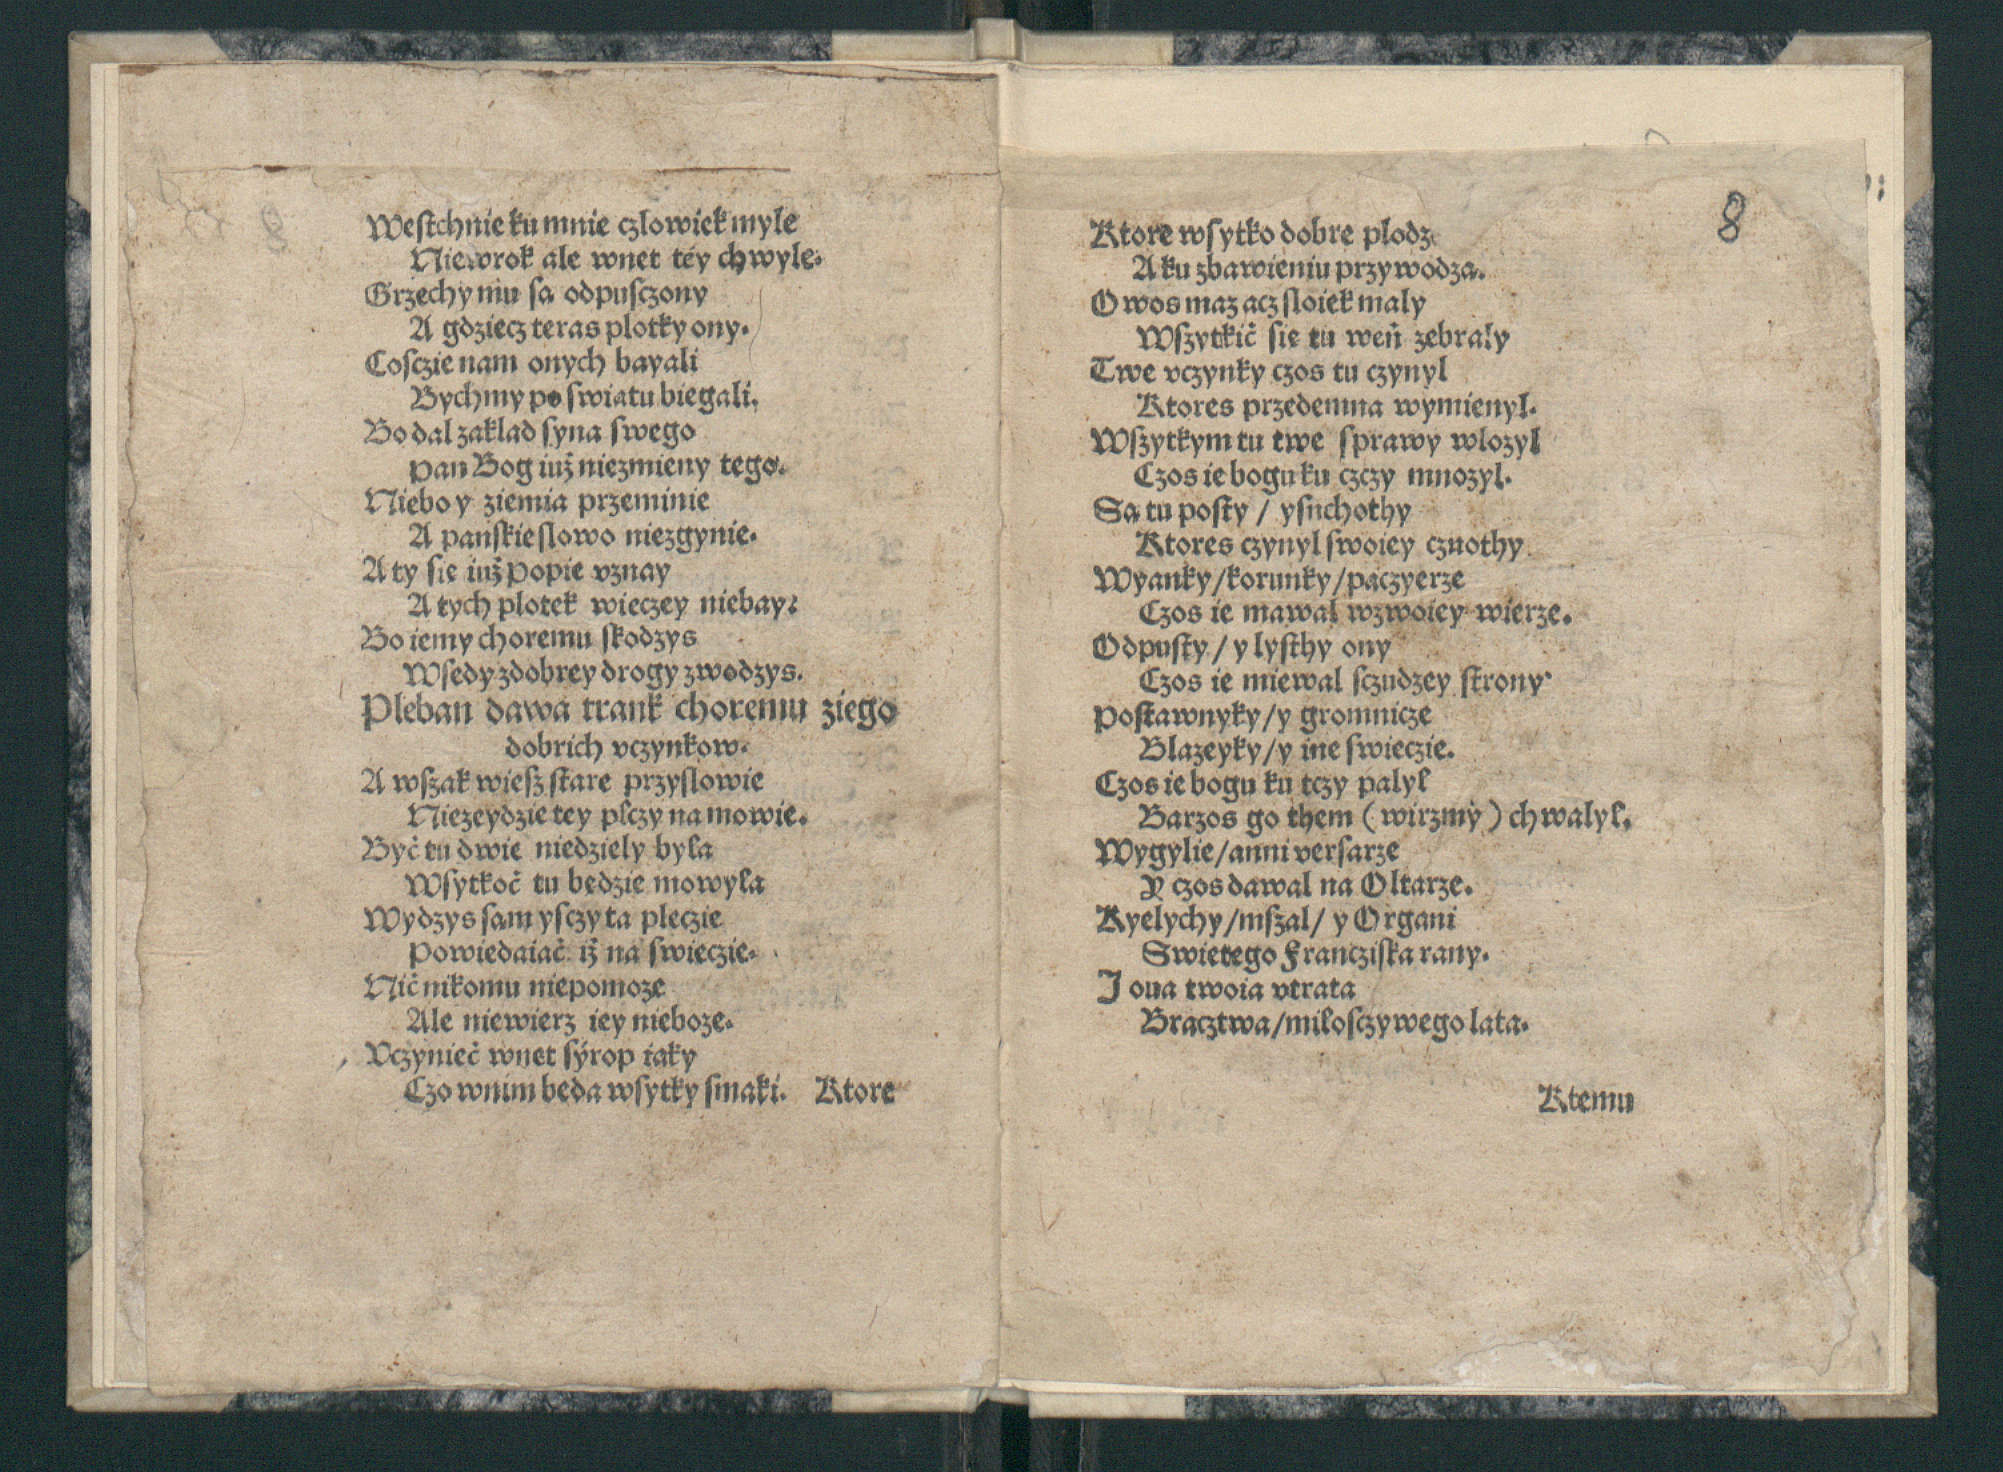 Westchnie ku mnie czlowiek myle
Niewrok ale wnet tey chwyle.
Grzechy mu sa odpusczony
A gdziecz teras plotky ony.
Cosczie nam onych bayali
Bychmy po swiatu biegali.
Bo dal zaklad syna swego
pan Bog iuż niezmieny tego.
Niebo y ziemia przeminie
A panskie slowo niezgynie.
A ty sie iuż popie vznay
A tych plotek wieczey niebay:
Bo iemy choremu skodzys
Wsedy zdobrey drogy zwodzys.
Pleban dawa trank choremu ziego
dobrich vczynkow.
A wszak wiesz stare przyslowie
Niezeydzie tey plczy na mowie.
Być tu dwie niedziely byla
Wsytkoć tu będzie mowyla
Wydzys sam ysczy ta pleczie
Powiedaiać iż na swieczie.
Nić nikomu niepomoze
Ale niewierz iey nieboze.
Vczynieć wnet sýrop taky
Czo wnim beda wsytky smaki. Ktore
8
Ktore wsytko dobre plodz
A ku zbawieniu przywodzą.
Owos masz acz sloiek maly
Wszytkić się tu weń zebraly
Twe vczynky czos tu czynyl
Ktores przedemna wymienyl.
Wszytkym tu twe sprawy wlozyl
Czos ie bogu ku czczy mnozyl.
Są tu posty / ysuchothy
Ktores czynyl swoiey cznothy
Wyanky/korunky/paczyerze
Czos ie mawal wzwoiey wierze.
Odpusty / y lysthy ony
Czos ie miewal sczudzey strony
Postawnyky/y gromnicze
Blazeyky/y ine swieczie.
Czos ie bogu ku tczy palyl
Barzos go them ( wirzmy ) chwalyl.
Wygylie/anniversarze
Y czos dawal na Oltarze.
Kyelychy/mszal/ y Organi
Swietego Francziska rany.
I ona twoia vtrata
Bracztwa/milosczywego lata.
Ktemu